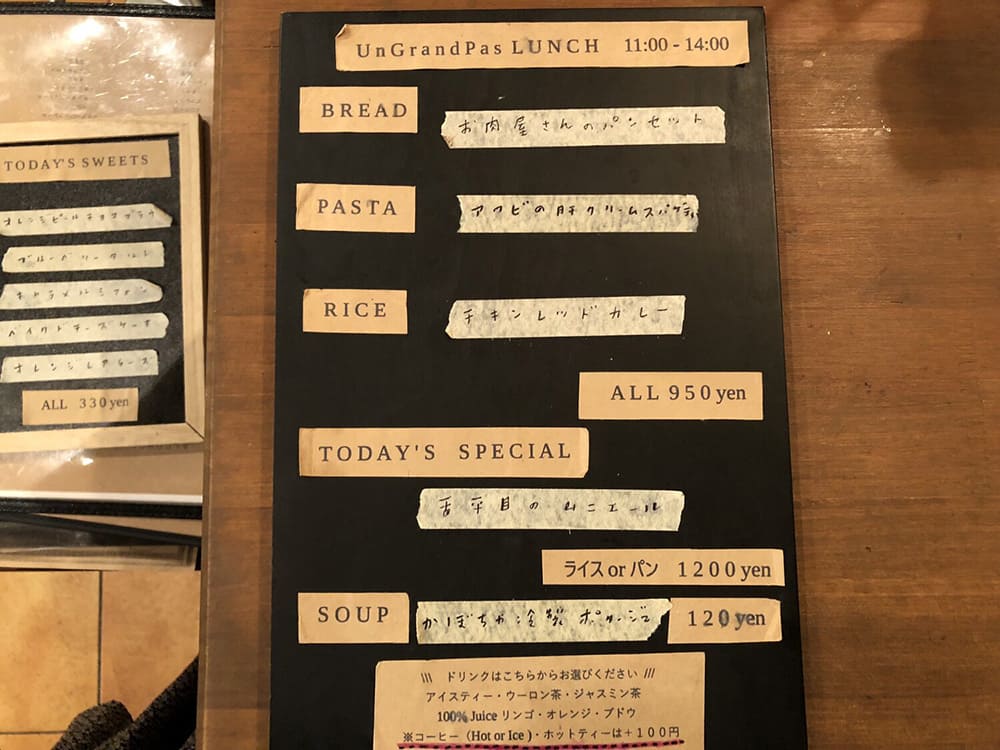 UnGrandPas LUNCH 11:00 - 14:00
BREAD
お肉屋さんのパンセット
PASTA
アワビの肝クリームスパゲティ
RICE
チキンレッドカレー
ALL 950 yen
TODAY'S SPECIAL
舌平目のムニエール
ライス or パン 1200 yen
SOUP
かぼちゃ冷製ポタージュ
120 yen
\\\ ドリンクはこちらからお選びください ///
アイスティー・ウーロン茶・ジャスミン茶
100% Juice リンゴ・オレンジ・ブドウ
※コーヒー（Hot or Ice）・ホットティーは＋１００円
TODAY'S SWEETS
オレンジピールチョコブラウ
ブルーベリータルト
キャラメルシフォン
ベイクドチーズケーキ
オレンジレアチーズ
ALL 330 yen